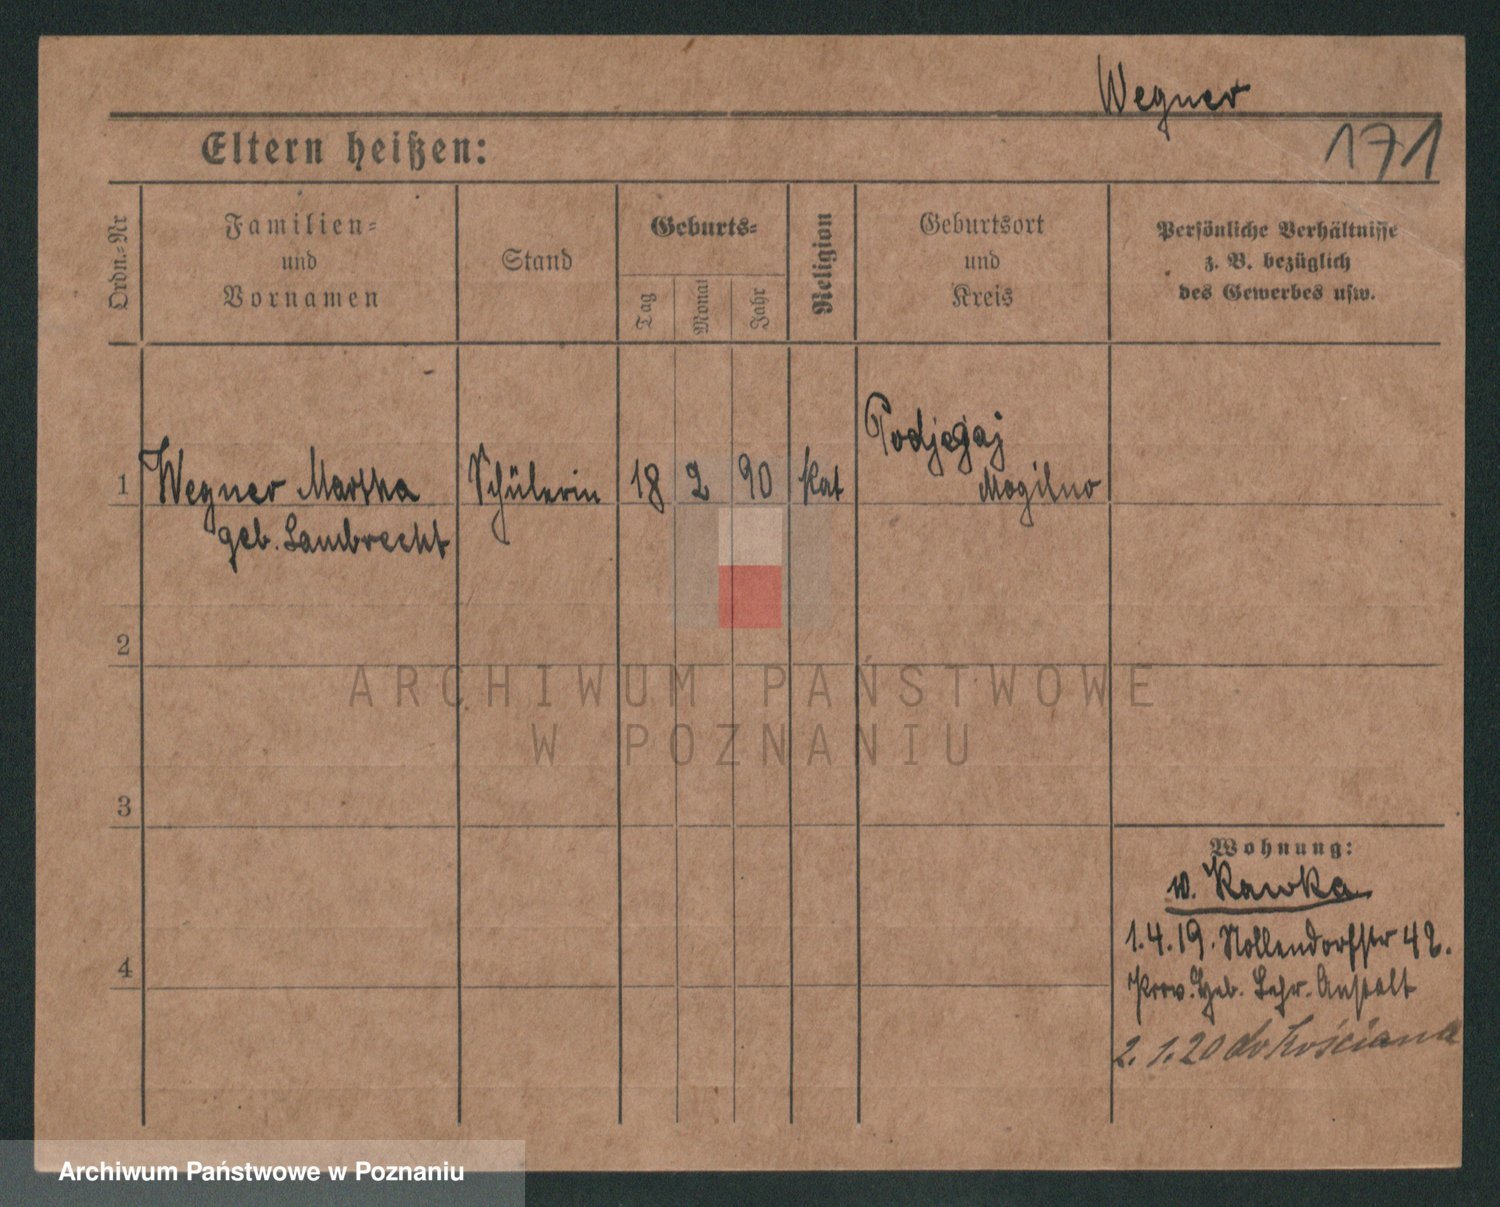 Wegner
171
Eltern heißen:
Ordn.-Nr
Familien-
und
Vornamen
Stand
Geburts-
Tag
Monat
Jahr
Religion
Geburtsort
und
Kreis
Persönliche Verhältnisse
z. B. bezüglich
des Gewerbes usw.
1
Wegner Martha
geb. Lambrecht
Schülerin
18
2
90
kat
Podjegaj
Mogilno
2
3
4
Wohnung:
w. Kawka
1.4.19. Nollendorfstr 42.
Prov. Heb. Lehr. Anstalt
2. 1.20 do Kościana
ARCHIWUM PAŃSTWOWE
W POZNANIU
Archiwum Państwowe w Poznaniu